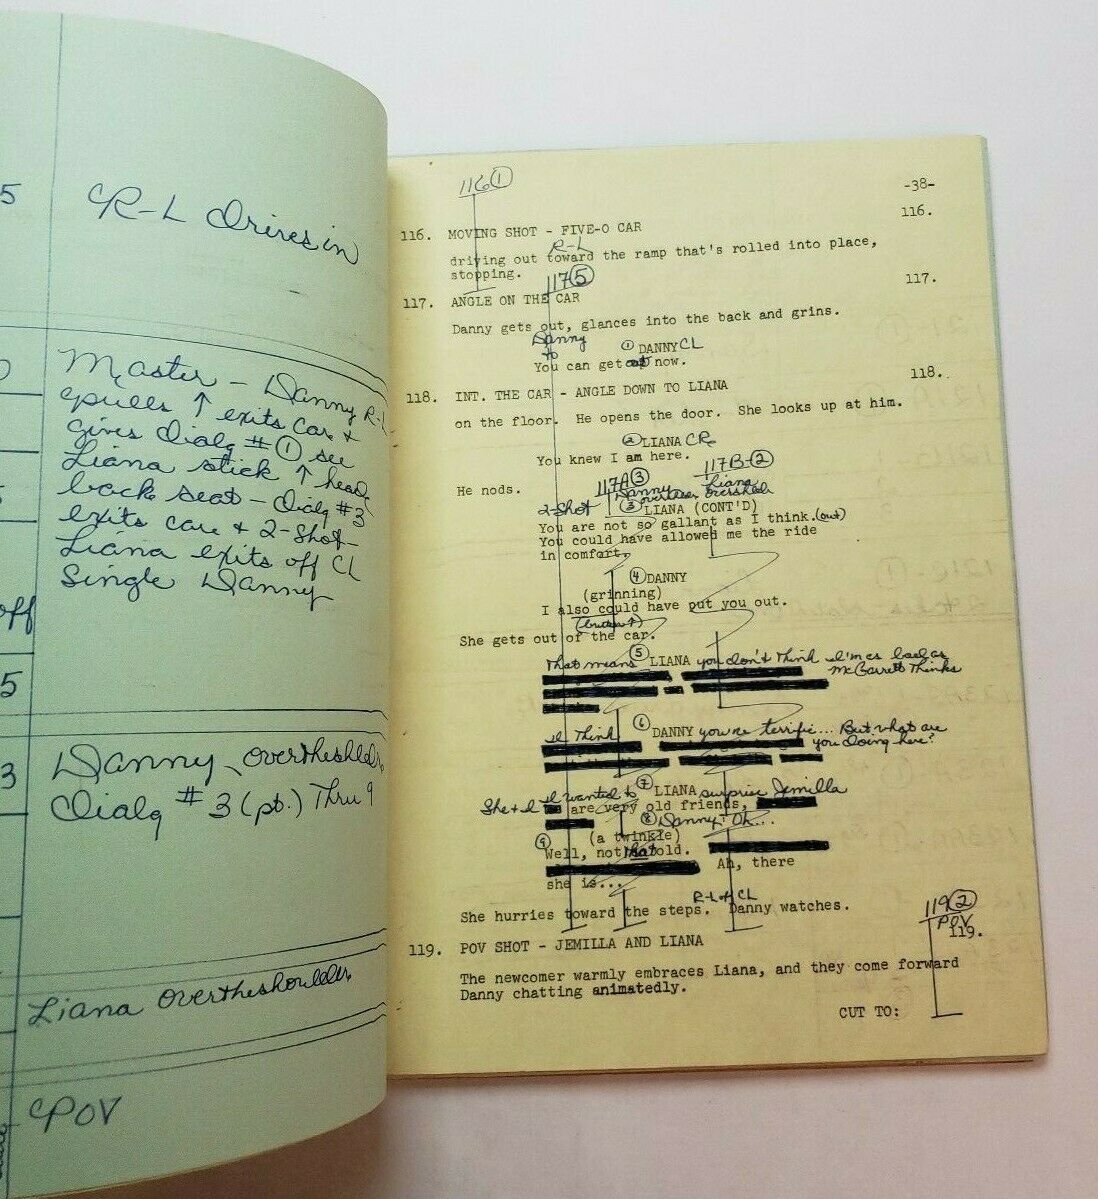 5
R-L Drives in
Master - Danny R-L
pulls ↑ exits car +
gives Dialg #① see
Liana stick ↑ head
back seat - Dialg #3
exits car + 2-Shot -
Liana exits off CL
Single Danny
off
5
3
Danny overtheshldr
Dialg #3 (pt.) Thru 9
Liana overtheshoulder
POV
116①
-38-
116. MOVING SHOT - FIVE-O CAR 116.
R-L
driving out toward the ramp that's rolled into place,
stopping.
117⑤
117. ANGLE ON THE CAR 117.
Danny gets out, glances into the back and grins.
Danny
to
① DANNY CL
You can get out now.
118. INT. THE CAR - ANGLE DOWN TO LIANA 118.
on the floor. He opens the door. She looks up at him.
② LIANA CR
You knew I am here.
He nods.
117A③ 117B-②
2-Shot Danny Liana
overshldr
③ LIANA (CONT'D)
You are not so gallant as I think. (out)
You could have allowed me the ride
in comfort.
④ DANNY
(grinning)
I also could have put you out.
She gets out of the car.
That means ⑤ LIANA you don't think I'm as bad as
McGarrett Thinks
I Think ⑥ DANNY you're terrific... But what are
you doing here?
I wanted to ⑦ LIANA surprise Jemilla
She + I are very old friends,
⑧ Danny: Oh...
(a twinkle)
⑨ Well, not that old.
Ah, there
she is...
R-L of CL
She hurries toward the steps. Danny watches.
119②
POV
119. POV SHOT - JEMILLA AND LIANA 119.
The newcomer warmly embraces Liana, and they come forward
Danny chatting animatedly.
CUT TO: